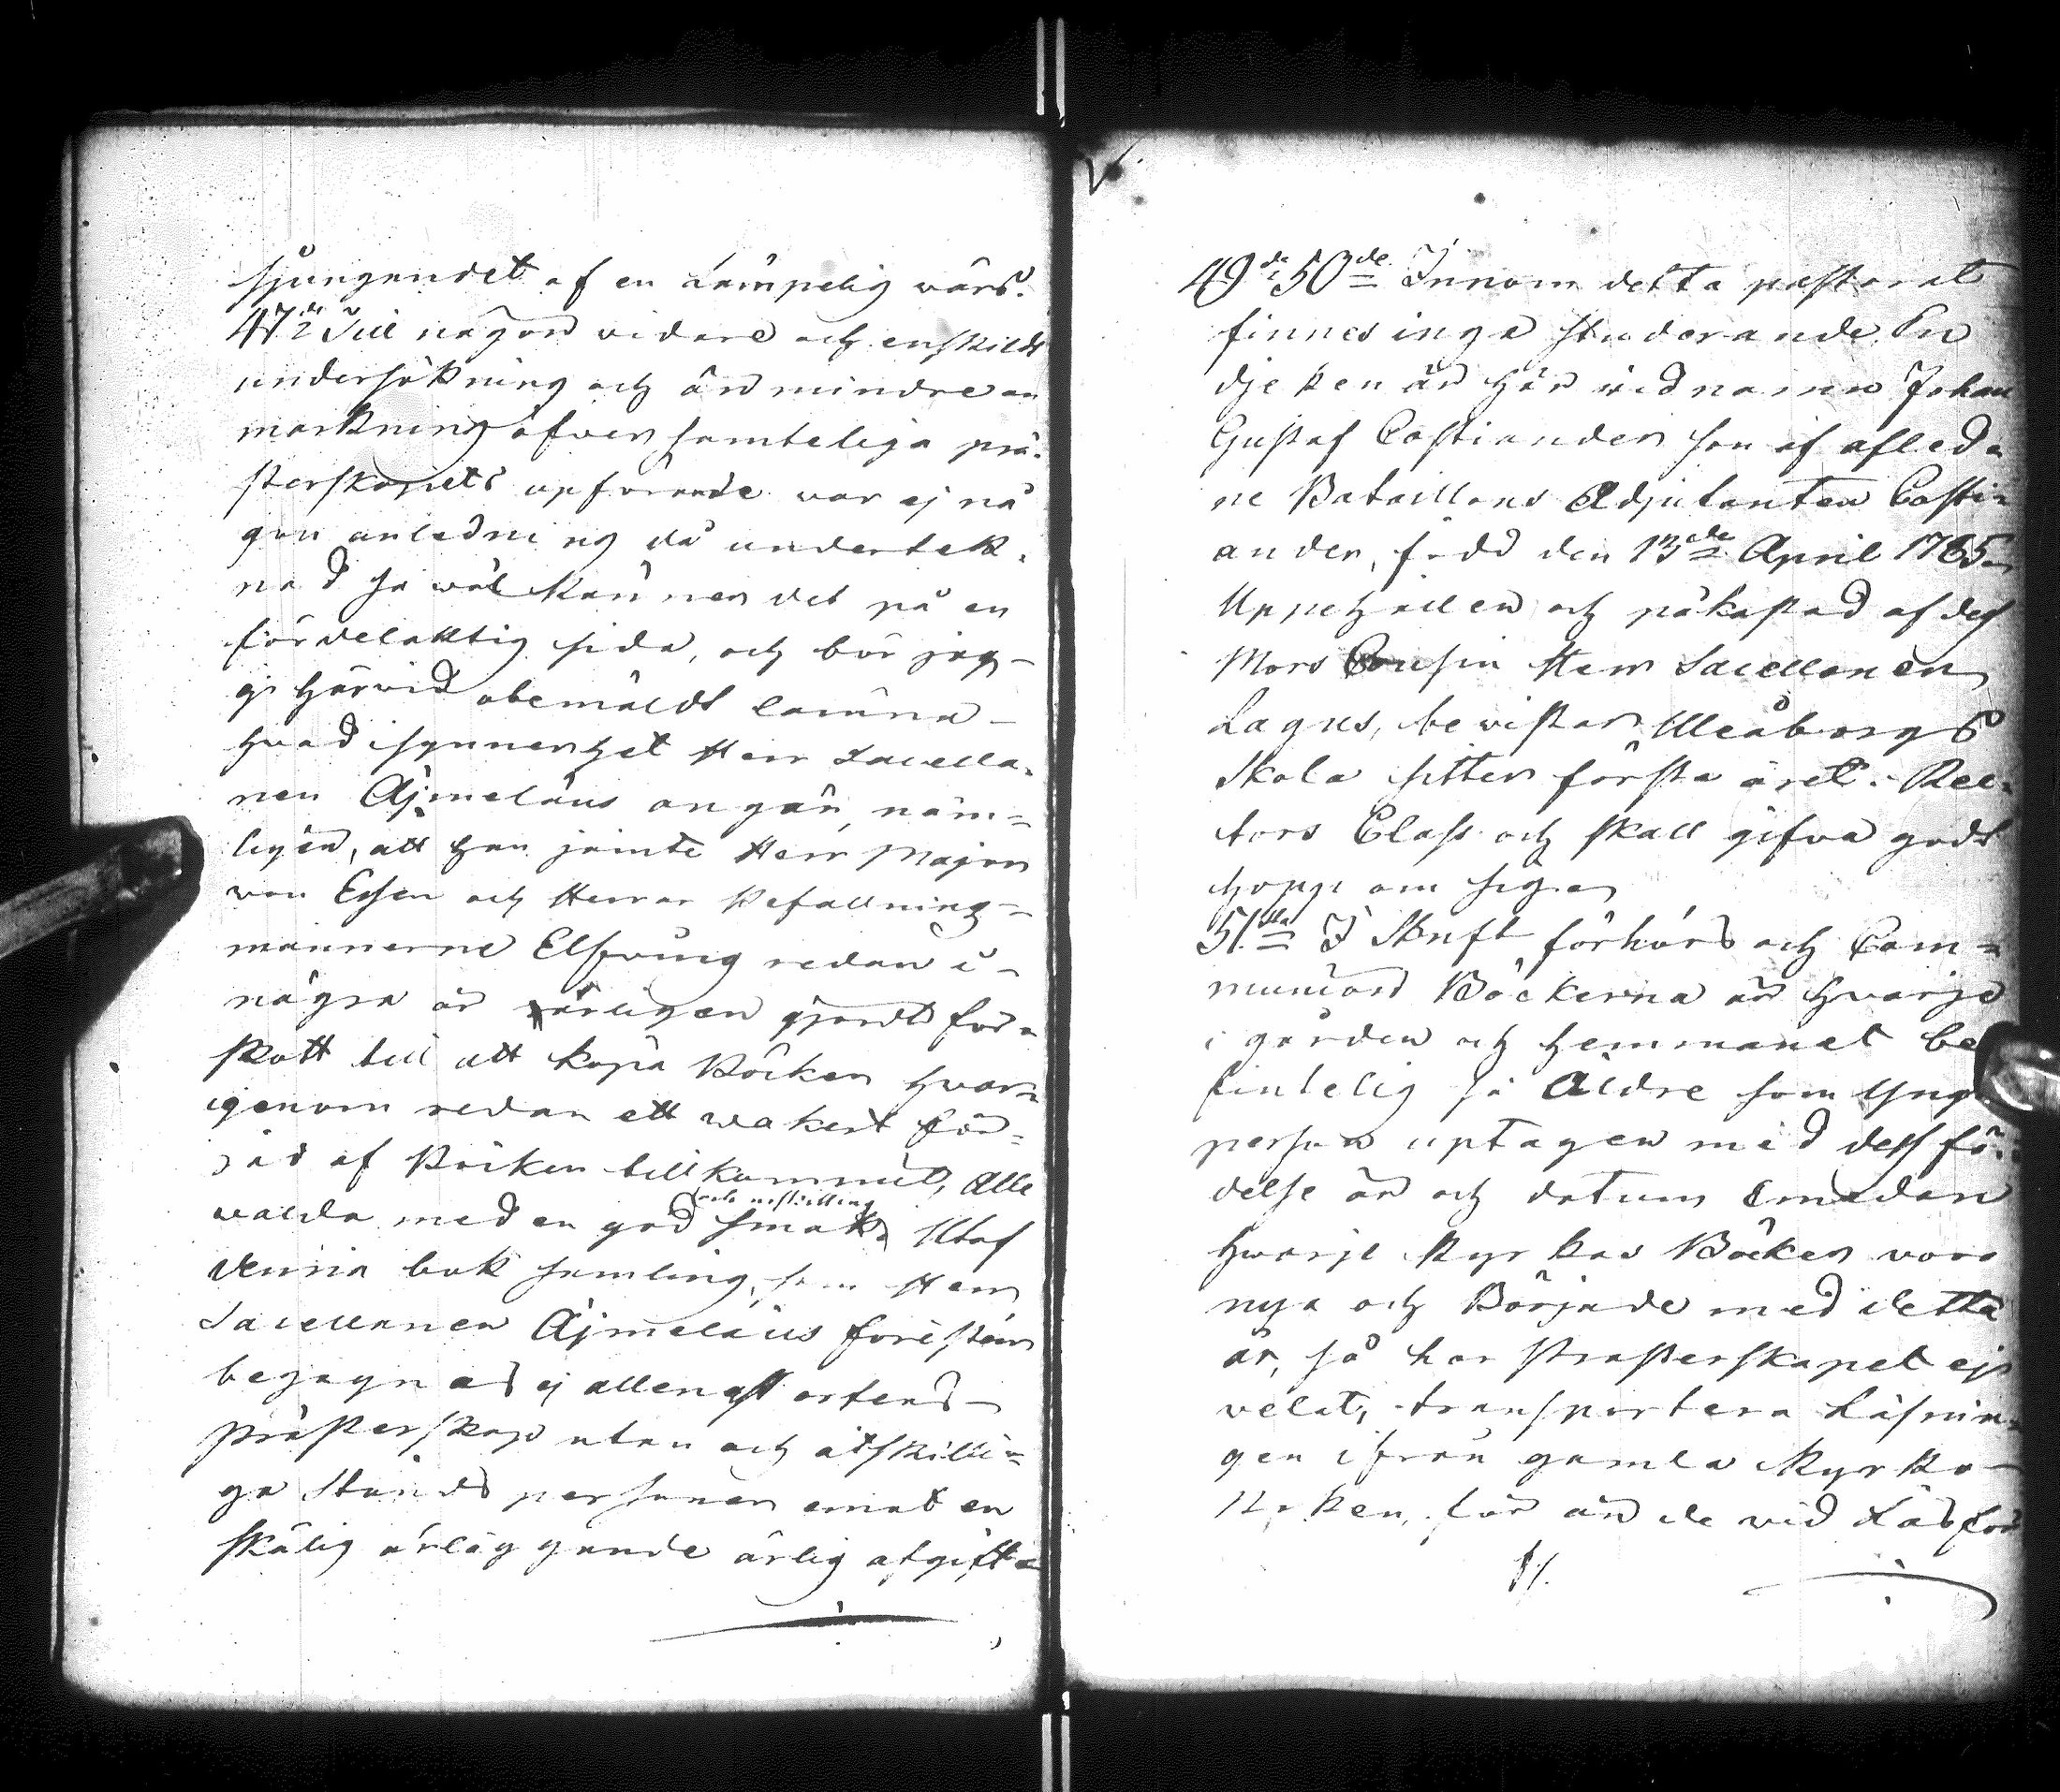 sjungendet af en lämpelig värs.
47de Till någon vidare och enskildt
undersökning och än mindre an
markning öfver samtelige prä-
sterskapets upförande var ej nå
gon anledning då undertek-
nad så wäl känner det på en
fördelaktig sida, och bör jag
ej härvid obemäldt lämna
hvad isynnerhet Herr Sacella-
nen Äjmelæus angår, näm-
ligen, att han jämte Herr Majoren
von Essen och Herrar Befallnings-
männerne Elfving redan i
några år årligen gjordt för-
skott till att köpa Böcker hvar-
igenom redan ett wakert för-
råd af Böcker tillkommit, Alla
walda med en god smak och urskilling Utaf
denna bok samling, som Herr
Sacellanen Äjmelæus förestår
begagnas ej allenast ortens
Prästerskap utan och åtskilli-
ga Stånds personer emot en
skälig ärläggande årlig afgift
49de 50de Innom detta pastorat
finnes inga studerande. En
djeken är här vid namn Johan
Gustaf Costiander son af afled-
ne Bataillons Adjutanten Costi-
ander, född den 13de April 1785
Uppehållen och påkostad af dess
Mors Cousin Herr Sacellanen
Lagus, bevistar Uleåborgs
Skola sitter första året i Rec-
tors Class och skall gifva godt
hopp om sig
51sta I Skrift förhörs och Com-
munions Böckerna är hvarje
i gården och hemmanet be
fintelig så Äldre som Yngre
person uptagen med dess fö-
delse år och datum Emedan
hwarje Kyrkas Böcker voro
nya och Började med detta
år, så har Prästerskapet ej
velat, transportera Läsnin-
gen ifrån gamla Kyrko
Boken, för än de vid Läsför